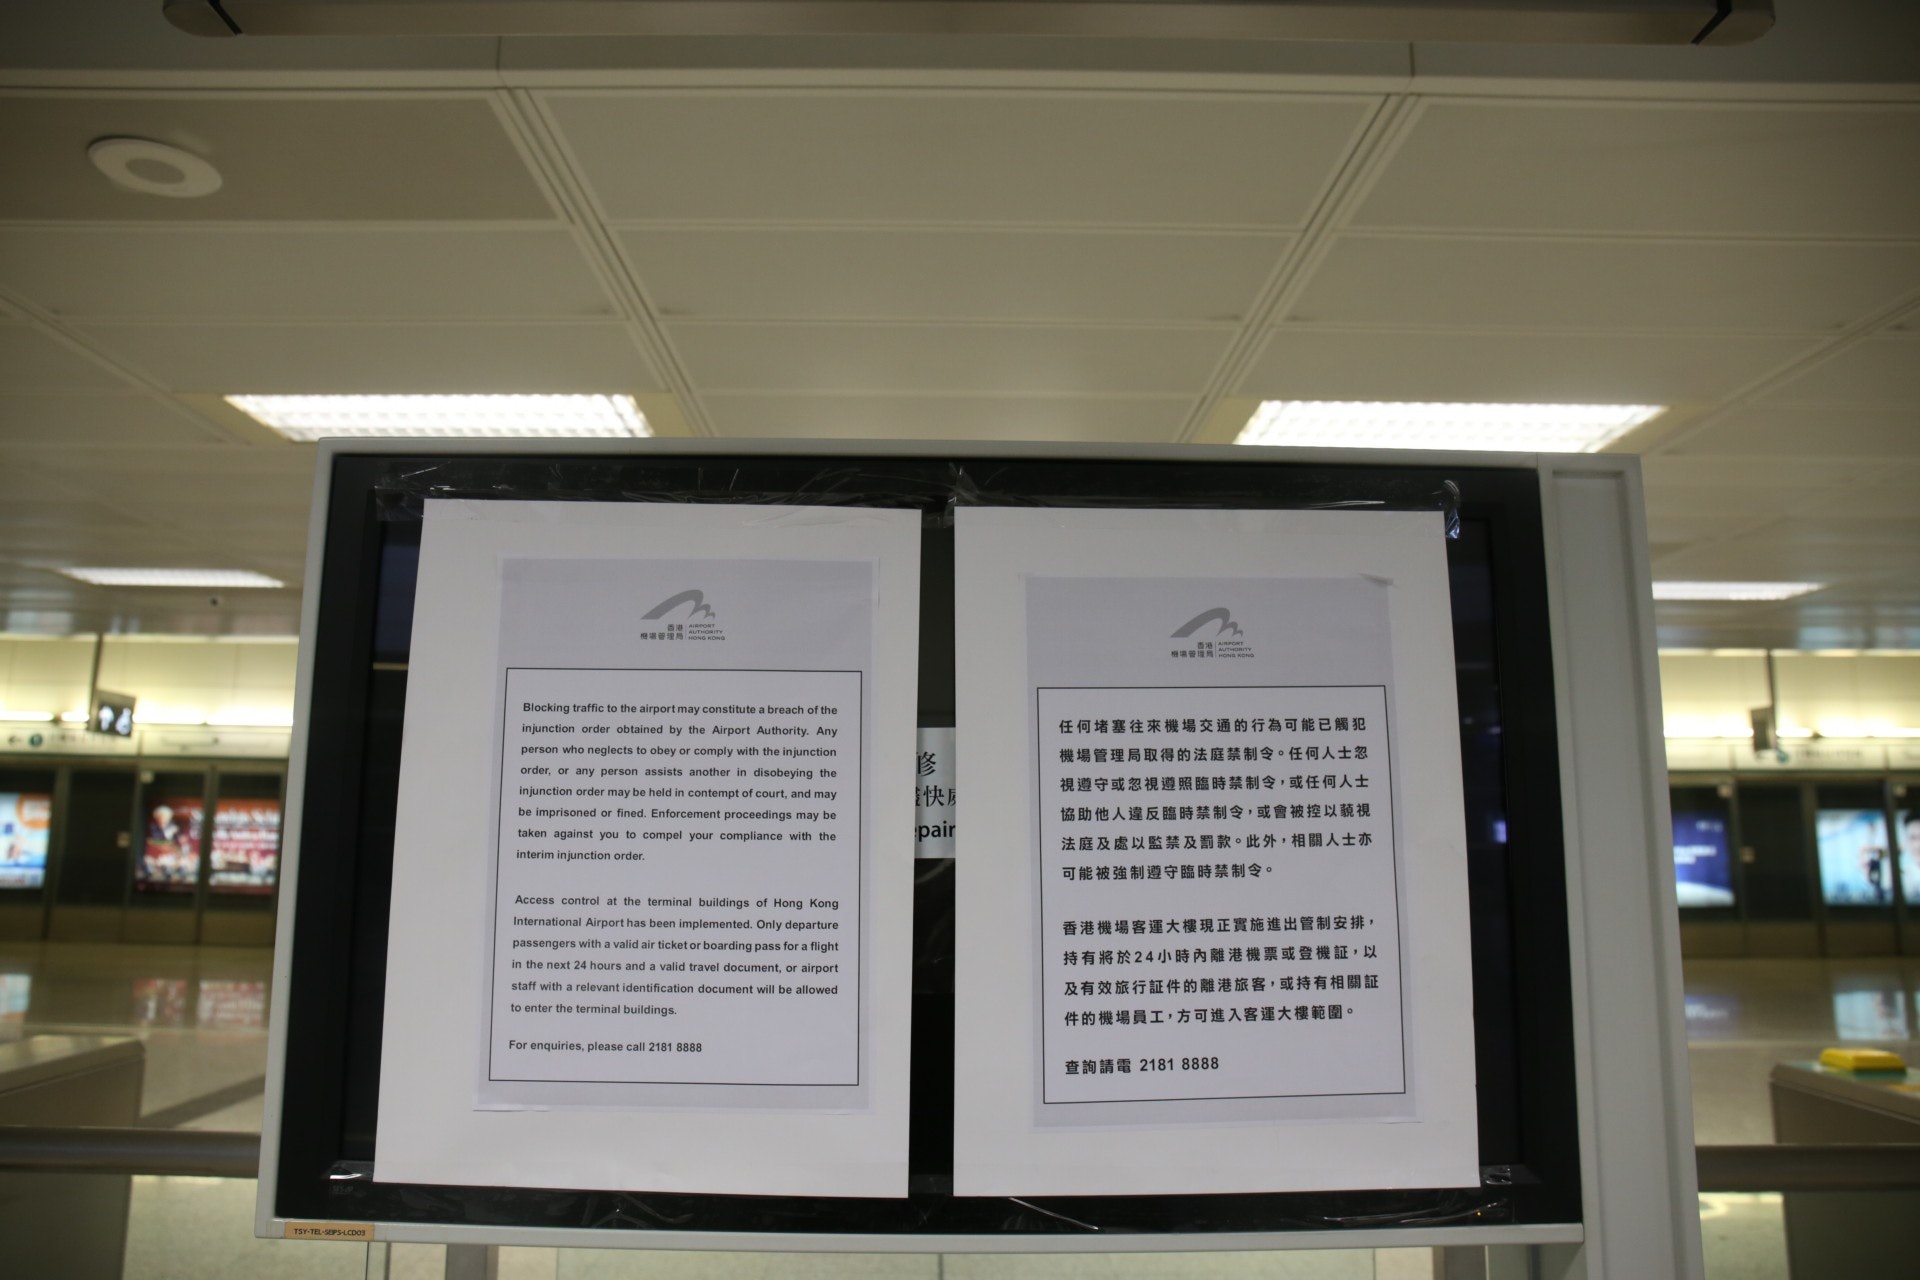 香港
機場管理局
AIRPORT
AUTHORITY
HONG KONG
Blocking traffic to the airport may constitute a breach of the
injunction order obtained by the Airport Authority. Any
person who neglects to obey or comply with the injunction
order, or any person assists another in disobeying the
injunction order may be held in contempt of court, and may
be imprisoned or fined. Enforcement proceedings may be
taken against you to compel your compliance with the
interim injunction order.
Access control at the terminal buildings of Hong Kong
International Airport has been implemented. Only departure
passengers with a valid air ticket or boarding pass for a flight
in the next 24 hours and a valid travel document, or airport
staff with a relevant identification document will be allowed
to enter the terminal buildings.
For enquiries, please call 2181 8888
修
快
epair
香港
機場管理局
AIRPORT
AUTHORITY
HONG KONG
任何堵塞往來機場交通的行為可能已觸犯
機場管理局取得的法庭禁制令。任何人士忽
視遵守或忽視遵照臨時禁制令，或任何人士
協助他人違反臨時禁制令，或會被控以藐視
法庭及處以監禁及罰款。此外，相關人士亦
可能被強制遵守臨時禁制令。
香港機場客運大樓現正實施進出管制安排，
持有將於24小時內離港機票或登機証，以
及有效旅行証件的離港旅客，或持有相關証
件的機場員工，方可進入客運大樓範圍。
查詢請電 2181 8888
TSY-TEL-SBPS-LCD03